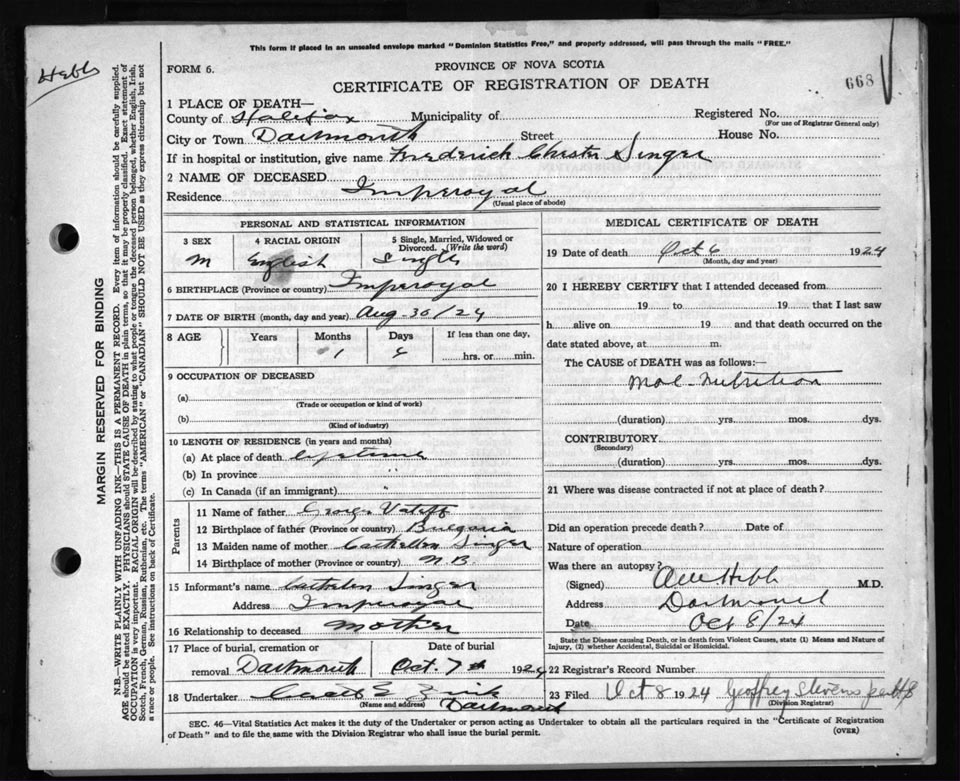 This form if placed in an unsealed envelope marked "Dominion Statistics Free," and properly addressed, will pass through the mails "FREE."
Hebb
FORM 6.
PROVINCE OF NOVA SCOTIA
CERTIFICATE OF REGISTRATION OF DEATH
668
1 PLACE OF DEATH—
County of Halifax Municipality of Registered No.
(For use of Registrar General only)
City or Town Dartmouth Street House No.
If in hospital or institution, give name Frederick Chester Singer
2 NAME OF DECEASED
Residence Imperoyal
(Usual place of abode)
PERSONAL AND STATISTICAL INFORMATION
3 SEX 4 RACIAL ORIGIN 5 Single, Married, Widowed or Divorced. (Write the word)
M English Single
6 BIRTHPLACE (Province or country) Imperoyal
7 DATE OF BIRTH (month, day and year) Aug-30/24
8 AGE Years Months Days If less than one day,
1 6 hrs. or min.
9 OCCUPATION OF DECEASED
(a)
(Trade or occupation or kind of work)
(b)
(Kind of industry)
10 LENGTH OF RESIDENCE (in years and months)
(a) At place of death lifetime
(b) In province "
(c) In Canada (if an immigrant) "
Parents
11 Name of father George
12 Birthplace of father (Province or country) Bulgaria
13 Maiden name of mother Singer
14 Birthplace of mother (Province or country) N.B.
15 Informant's name Singer
Address Imperoyal
16 Relationship to deceased Mother
17 Place of burial, cremation or removal Dartmouth Date of burial Oct. 7th 1924
18 Undertaker Zink
(Name and address) Dartmouth
MEDICAL CERTIFICATE OF DEATH
19 Date of death Oct 6 1924
(Month, day and year)
20 I HEREBY CERTIFY that I attended deceased from
19 to 19 that I last saw
h alive on 19 and that death occurred on the
date stated above, at m.
The CAUSE of DEATH was as follows:—
Mal-nutrition
(duration) yrs. mos. dys.
CONTRIBUTORY
(Secondary)
(duration) yrs. mos. dys.
21 Where was disease contracted if not at place of death?
Did an operation precede death? Date of
Nature of operation
Was there an autopsy?
(Signed) Hebb M.D.
Address Dartmouth
Date Oct 8/24
State the Disease causing Death, or in death from Violent Causes, state (1) Means and Nature of
Injury, (2) whether Accidental, Suicidal or Homicidal.
22 Registrar's Record Number
23 Filed Oct 8 1924 Geoffrey Stevens
(Division Registrar)
SEC. 46—Vital Statistics Act makes it the duty of the Undertaker or person acting as Undertaker to obtain all the particulars required in the "Certificate of Registration
of Death" and to file the same with the Division Registrar who shall issue the burial permit.
(OVER)
MARGIN RESERVED FOR BINDING
N.B.—WRITE PLAINLY WITH UNFADING INK—THIS IS A PERMANENT RECORD. Every item of information should be carefully supplied.
AGE should be stated EXACTLY. PHYSICIANS should STATE CAUSE OF DEATH in plain terms, so that it may be properly classified. Exact statement of
OCCUPATION is very important. RACIAL ORIGIN will be described by stating to what people or tongue the deceased person belonged, whether English, Irish,
Scotch, French, German, Russian, Ruthenian, etc. The terms "AMERICAN" or "CANADIAN" SHOULD NOT BE USED as they express citizenship but not
a race or people. See instructions on back of Certificate.